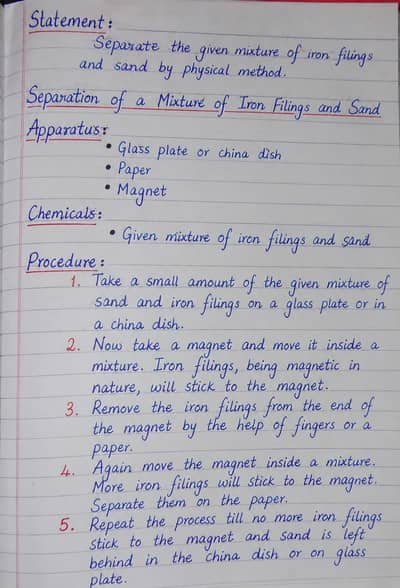 Statement:
Separate the given mixture of iron filings
and sand by physical method.
Separation of a Mixture of Iron Filings and Sand
Apparatus:
• Glass plate or china dish
• Paper
• Magnet
Chemicals:
• Given mixture of iron filings and sand
Procedure:
1. Take a small amount of the given mixture of
sand and iron filings on a glass plate or in
a china dish.
2. Now take a magnet and move it inside a
mixture. Iron filings, being magnetic in
nature, will stick to the magnet.
3. Remove the iron filings from the end of
the magnet by the help of fingers or a
paper.
4. Again move the magnet inside a mixture.
More iron filings will stick to the magnet.
Separate them on the paper.
5. Repeat the process till no more iron filings
stick to the magnet and sand is left
behind in the china dish or on glass
plate.